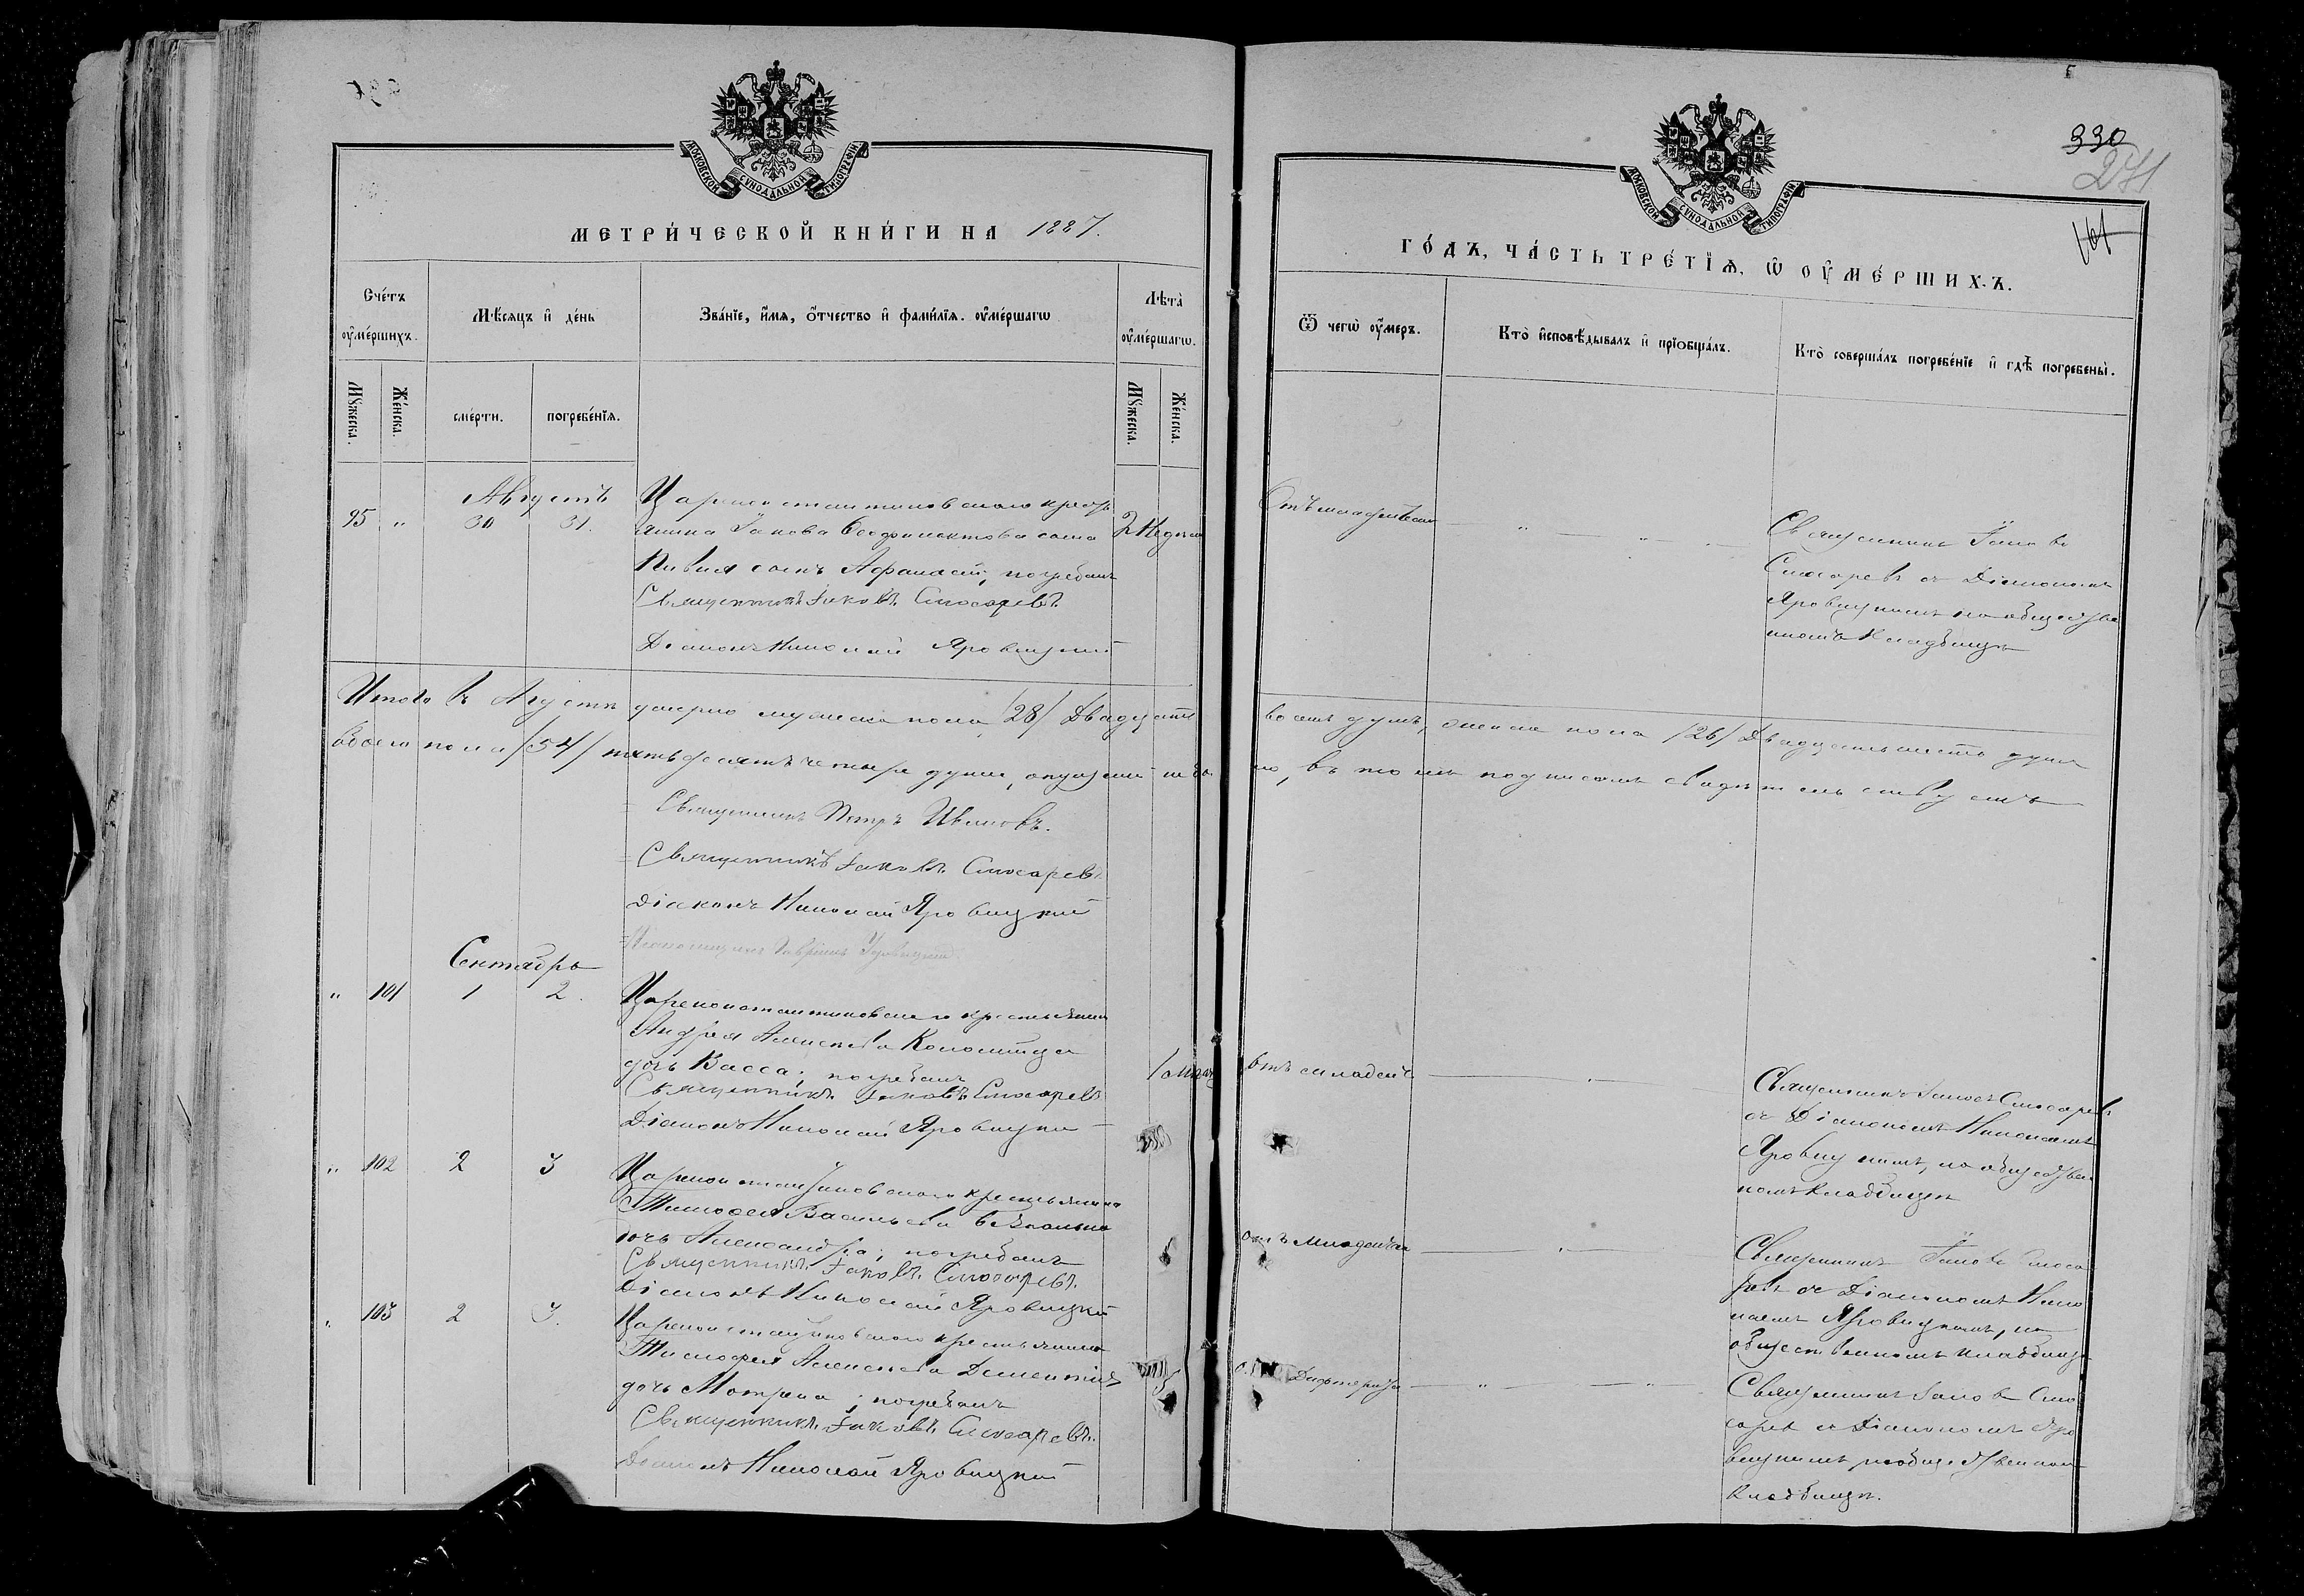 МОСКОВСКОЙ СУНОДАЛЬНОЙ ТИПОГРАФІИ
МЕТРИ́ЧЕСКОЙ КНИ́ГИ НА 1887.
Сче́тъ оу҆ме́ршихъ.
Мѣ́сяцъ и҆ де́нь
Зва́нїе, и҆́мя, ѻ҆́тчество и҆ фами́лїя. оу҆ме́ршагѡ
Лѣ́та оу҆ме́ршагѡ.
Мꙋ́жеска.
Же́нска.
сме́рти.
погребе́нїя.
Мꙋ́жеска.
Же́нска.
Августъ
95 " 30 31.
Цареконстантиновскаго кресть
янина Іакова Ѳеофилактова сына
сынъ Афанасій; погребалъ
Священникъ Іаковъ Слюсаревъ
Діаконъ Николай Яровицкій
2 Недели
Итого въ Августѣ умерло мужеска пола /28/ Двадцать
обоего пола /54/ пятьдесятъ четыре души,
Священникъ Петръ Ивановъ.
Священникъ Іаковъ Слюсаревъ
Діаконъ Николай Яровицкій
Сентябрь
" 101 1 2.
Цареконстантиновскаго крестьянина
Андрея Алексѣева Коломійца
дочь Васса; погребалъ
Священникъ Іаковъ Слюсаревъ
Діаконъ Николай Яровицкій
" 102 2 3
Цареконстантиновскаго крестьянина
Тимофея Васильева
дочь Александра; погребалъ
Священникъ Іаковъ Слюсаревъ.
Діаконъ Николай Яровицкій
" 103 2 3.
Цареконстантиновскаго крестьянина
Тимофея Алексѣева
дочь Мотрона; погребалъ
Священникъ Іаковъ Слюсаревъ.
Діаконъ Николай Яровицкій
330
271
МОСКОВСКОЙ СУНОДАЛЬНОЙ ТИПОГРАФІИ
ГО́ДЪ, ЧА́СТЬ ТРЕ́ТЇѦ, Ѡ҆ ОУ҆МЕ́РШИХЪ.
Ѿ чегѡ̀ оу҆́меръ.
Кто̀ и҆сповѣ́дывалъ и҆ прїѻбща́лъ.
Кто̀ соверша́лъ погребе́нїе и҆ гдѣ̀ погребены̀.
"
Священникъ Іаковъ
Слюсаревъ съ Діакономъ
Яровицкимъ на обществе
нномъ кладбищѣ
восемь душъ, женска пола /26/ Двадцать шесть душъ
въ томъ подписомъ свидѣтельствуемъ
отъ младенч.
Священникъ Іаковъ Слюсаревъ
съ Діакономъ Николаемъ
Яровицкимъ, на обществен
номъ кладбищѣ
отъ младенч
Священникъ Іаковъ Слюса
ревъ съ Діакономъ Нико
лаемъ Яровицкимъ, на
общественномъ кладбищѣ
Дифтерита
Священникъ Іаковъ Слю
саревъ съ Діакономъ Яро
вицкимъ на общественномъ
кладбищѣ.